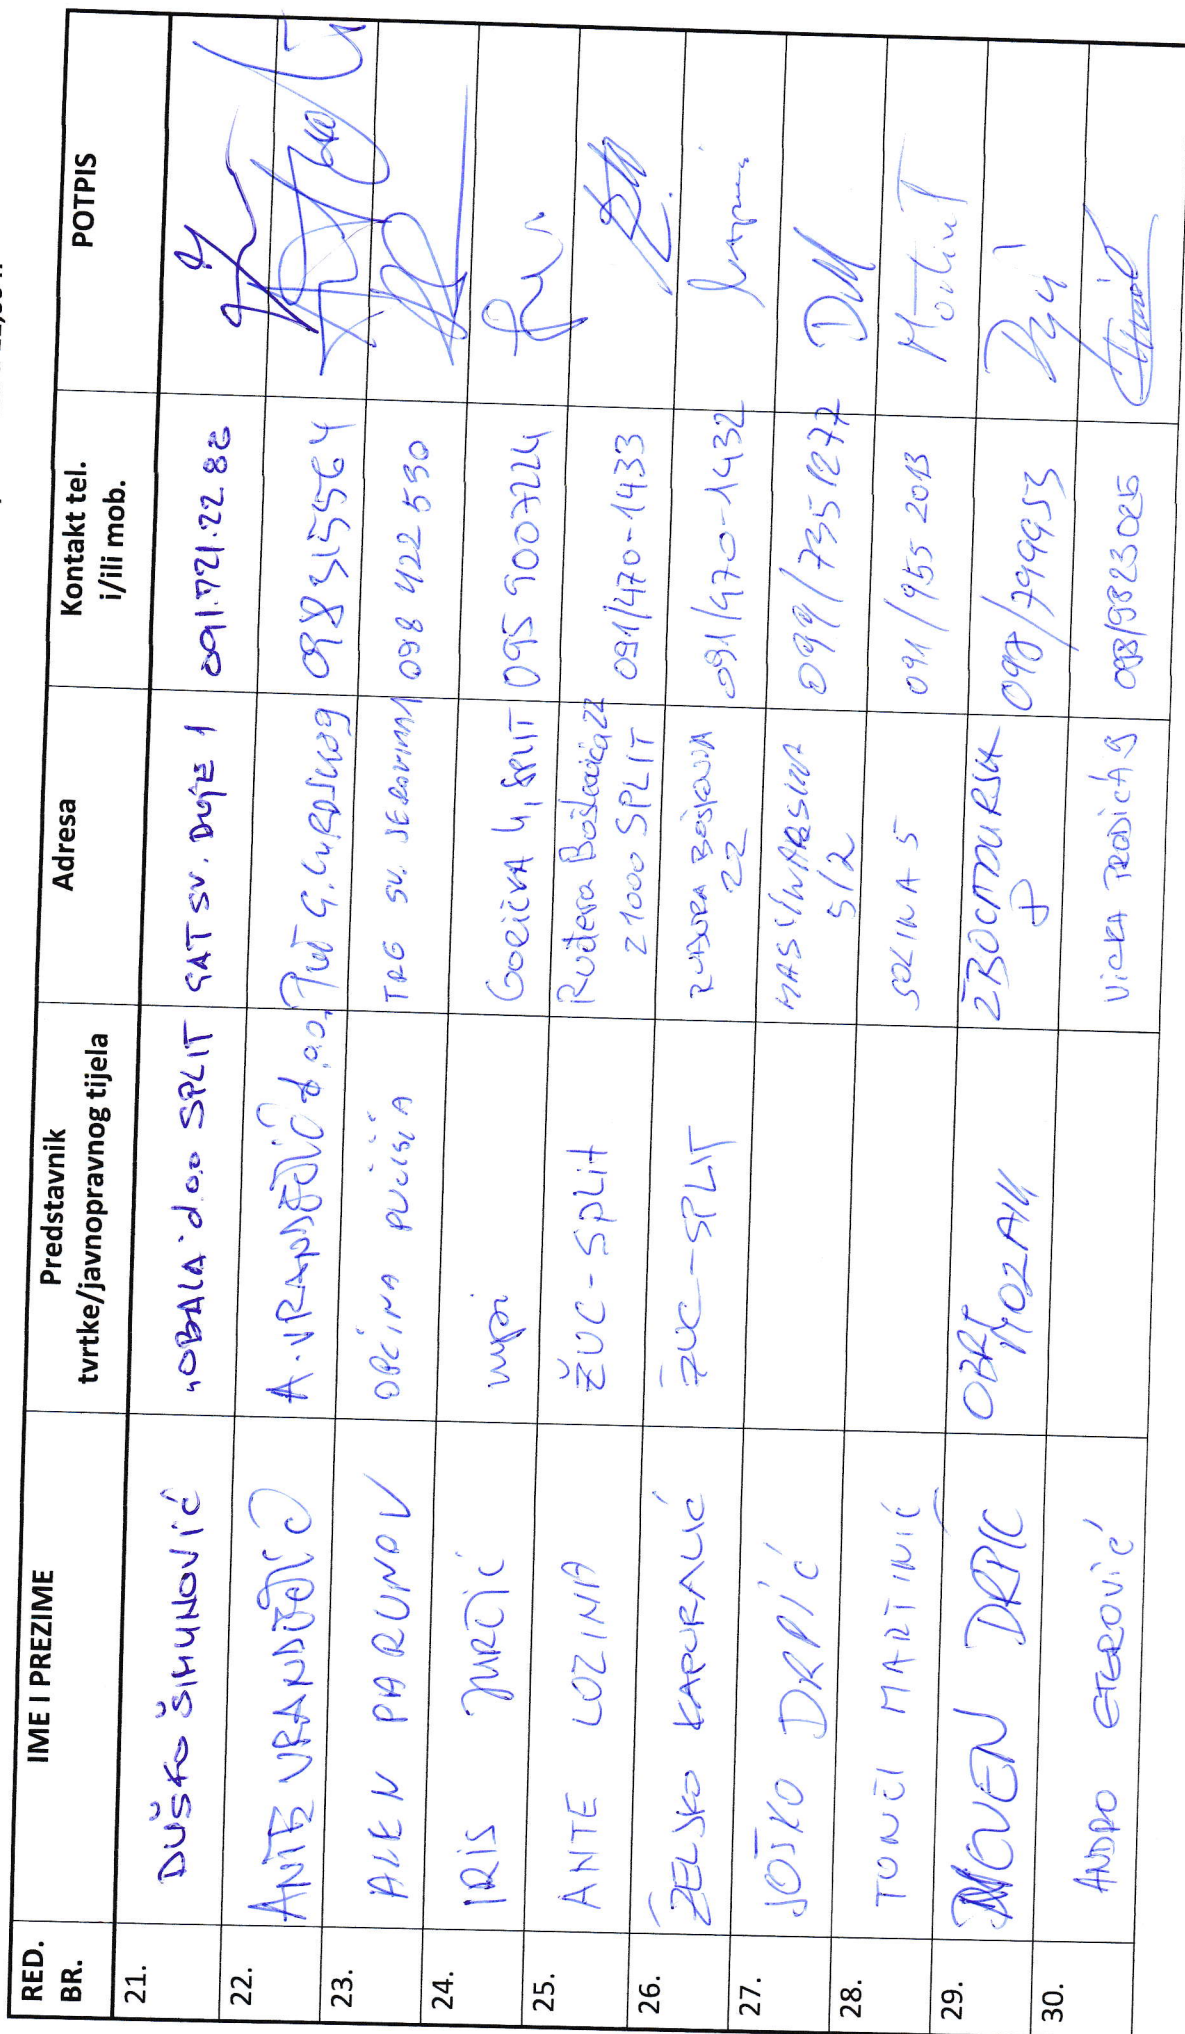 RED. BR.
IME I PREZIME
Predstavnik
tvrtke/javnopravnog tijela
Adresa
Kontakt tel.
i/ili mob.
POTPIS
21.
DUŠKO ŠIMUNOVIĆ
"OBALA" d.o.o SPLIT
GAT SV. DUJE 1
091.721.22.86
22.
ANTE VRANDEČIĆ
A. VRANDEČIĆ d.o.o.
PUT G.
098 315564
23.
ALEN PARUNOV
OPĆINA PUČIŠĆA
TRG SV. JERONIMA 1
098 422 590
24.
IRIS JURČIĆ
GORIČKA 4, SPLIT
095 9007224
25.
ANTE LOZINA
ŽUC - Split
Ruđera Boškovića 22
21000 SPLIT
091/470-1433
26.
ŽELJKO KAPURALIĆ
ŽUC - SPLIT
RUĐERA BOŠKOVIĆA
22
091/470-1432
27.
JOŠKO DRPIĆ
5/2
099/735 1277
28.
TONČI MARTINIĆ
SOLINA 5
091/955 2013
29.
NEVEN DRPIĆ
OBRT
MOZAIK
098/799953
30.
ANDRO ETEROVIĆ
098/9823025